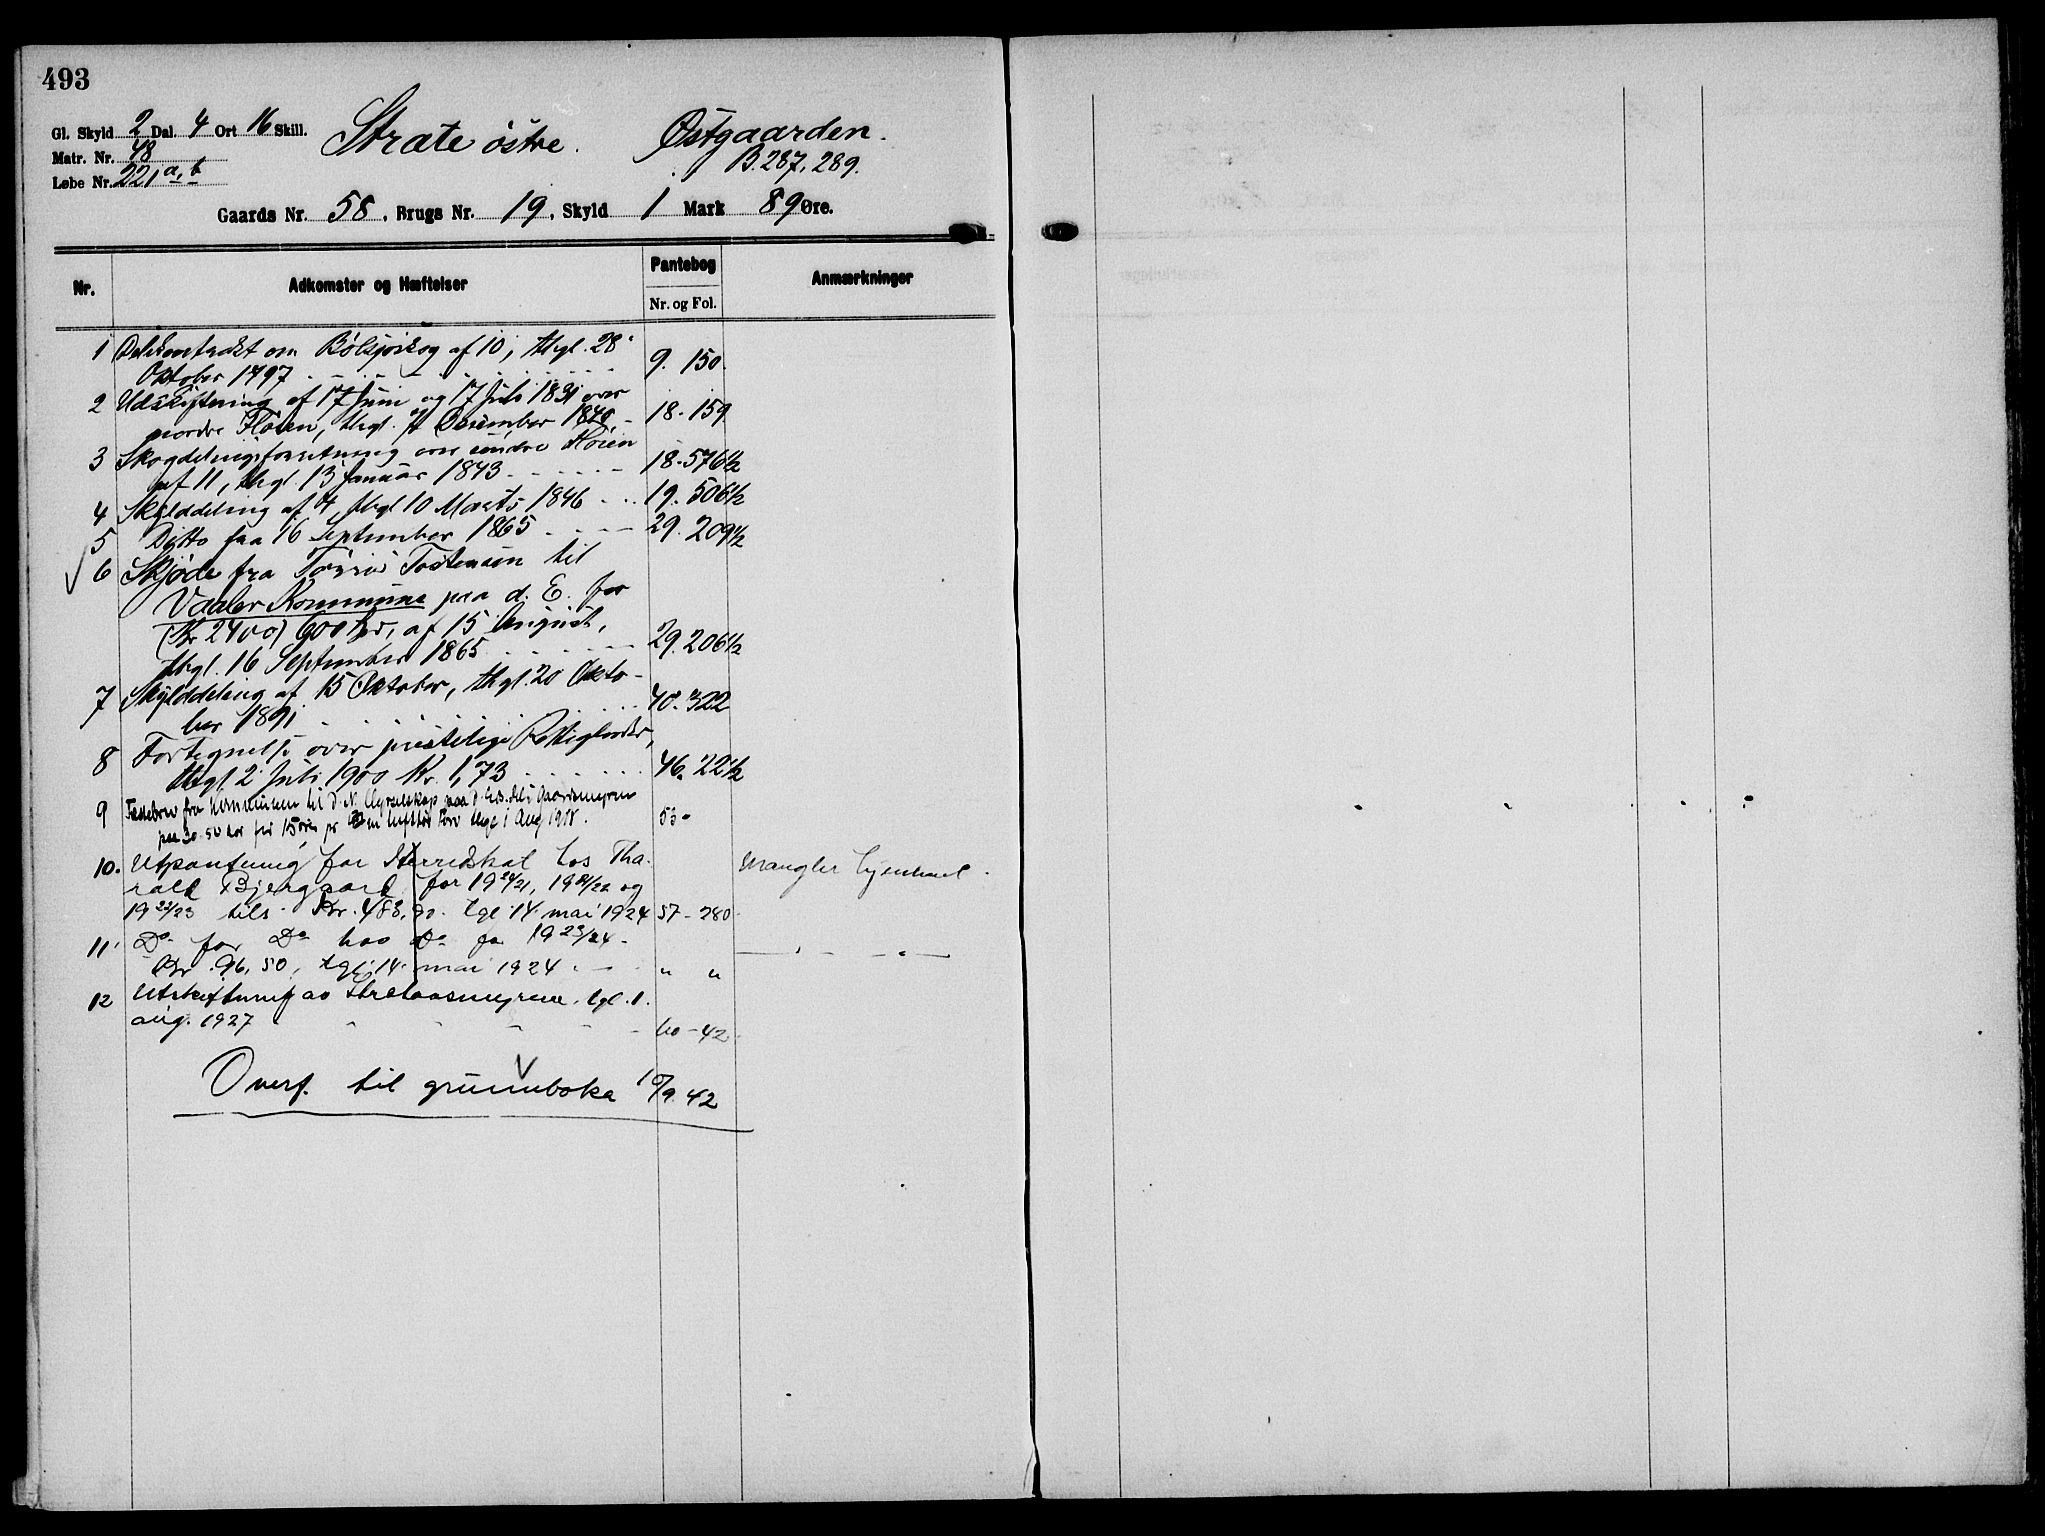 493
Gl. Skyld 2 Dal. 4 Ort 16 Skill.
Matr. Nr. 48
Løbe Nr. 221 a, b
Strate østre. Østgaarden.
B. 287, 289.
Gaards Nr. 58, Brugs Nr. 19, Skyld 1 Mark 89 Øre.
Nr. Adkomster og Hæftelser Pantebog Anmærkninger
Nr. og Fol.
1 Delekontrakt om af 10, thgl. 28
Oktober 1797 9. 150.
2 Udskiftning af 17 Juni og 17 Juli 1831 over
nordre Flöien, thgl. December 1840 18. 159
3 Skogdelingsforretning over söndre Flöien
af 11, thgl. 13 Januar 1843 18. 576 1/2
4 Skylddeling af 4, thgl 10 Marts 1846 19. 506 1/2
5 Ditto fra 16 September 1865 29. 209 1/2
6 Skjøde fra Tostensen til
Vaaler Kommune paa d. E. for
(Kr 2400) 600 Spd, af 15 August,
thgl. 16 September 1865 29. 206 1/2
7 Skylddeling af 15 Oktober, thgl. 20 Okto-
ber 1891 40. 322
8 Fortegnelse over prestelige Rettigheder,
thgl. 2 Juli 1900 Kr. 1,73 46. 22 1/2
9 Fæstebrev fra kommunen til D. N. Myrselskap paa
paa 30-50 aar for 15 øre pr lufttør Torv thgl 1 Aug 53
10. Utpantning for Herredskat hos Tha-
rald Bjergaard for 1920/21, 1921/22 og
1922/23 tils. Kr. 483,90. tgl. 14. mai 1924 57 - 280. Mangler hjemmel.
11 Do for Do hos Do for 1923/24.
Kr. 96,50, tgl. 14. mai 1924 " " — " — " —
12 Utskiftning av tgl. 1.
aug. 1927 60 - 42.
Overf. til grunnboka 10/9. 42